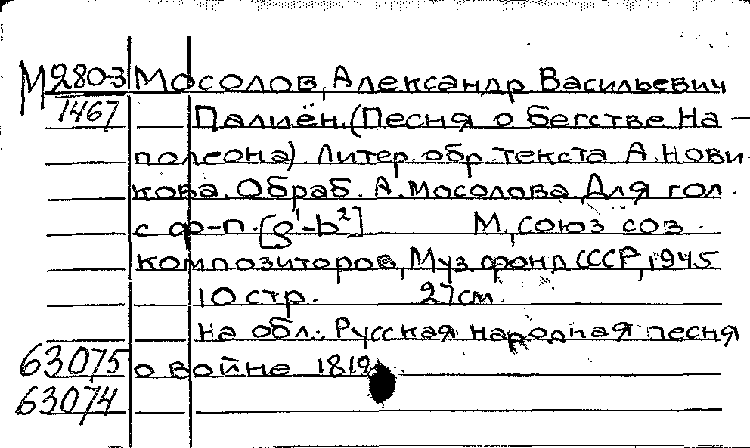 М 280-3 Мосолов, Александр Васильевич
1467 Палиён. (Песня о бегстве На-
полеона) Литер. обр. текста А. Нови-
кова. Обраб. А. Мосолова. Для гол.
с ф-п. [g¹-b²] М., Союз сов.
композиторов, Муз. фонд СССР, 1945
10 стр. 27см.
На обл.: Русская народная песня
63075 о войне 1812
63074